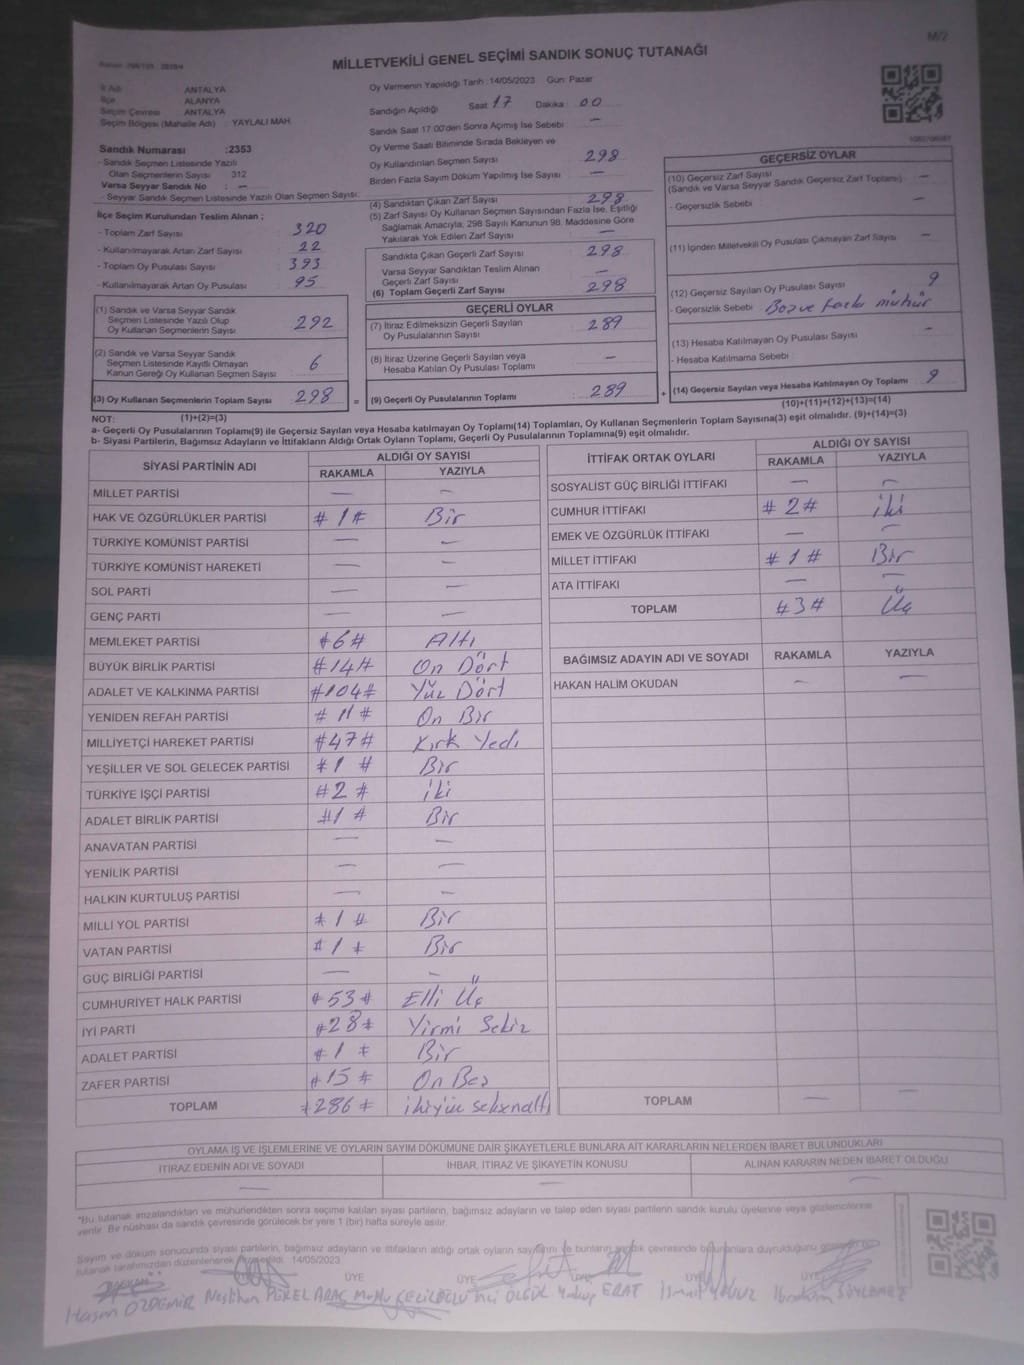 M/2
MİLLETVEKİLİ GENEL SEÇİMİ SANDIK SONUÇ TUTANAĞI
İl Adı ANTALYA
İlçe ALANYA
Seçim Çevresi ANTALYA
Seçim Bölgesi (Mahalle Adı) : YAYLALI MAH.
Sandık Numarası :2353
- Sandık Seçmen Listesinde Yazılı
Olan Seçmenlerin Sayısı 312
Varsa Seyyar Sandık No : —
- Seyyar Sandık Seçmen Listesinde Yazılı Olan Seçmen Sayısı:
Oy Vermenin Yapıldığı Tarih :14/05/2023 Gün: Pazar
Sandığın Açıldığı Saat 17 Dakika : 00
Sandık Saat 17:00'den Sonra Açılmış İse Sebebi —
Oy Verme Saati Bitiminde Sırada Bekleyen ve
Oy Kullandırılan Seçmen Sayısı 298
Birden Fazla Sayım Döküm Yapılmış İse Sayısı —
(4) Sandıktan Çıkan Zarf Sayısı 298
(5) Zarf Sayısı Oy Kullanan Seçmen Sayısından Fazla İse, Eşitliği
Sağlamak Amacıyla; 298 Sayılı Kanunun 98. Maddesine Göre
Yakılarak Yok Edilen Zarf Sayısı —
İlçe Seçim Kurulundan Teslim Alınan ;
- Toplam Zarf Sayısı : 320
- Kullanılmayarak Artan Zarf Sayısı : 22
- Toplam Oy Pusulası Sayısı : 393
- Kullanılmayarak Artan Oy Pusulası : 95
Sandıkta Çıkan Geçerli Zarf Sayısı : 298
Varsa Seyyar Sandıktan Teslim Alınan
Geçerli Zarf Sayısı —
(6) Toplam Geçerli Zarf Sayısı : 298
(1) Sandık ve Varsa Seyyar Sandık
Seçmen Listesinde Yazılı Olup
Oy Kullanan Seçmenlerin Sayısı : 292
(2) Sandık ve Varsa Seyyar Sandık
Seçmen Listesinde Kayıtlı Olmayan
Kanun Gereği Oy Kullanan Seçmen Sayısı : 6
(3) Oy Kullanan Seçmenlerin Toplam Sayısı : 298 =
GEÇERLİ OYLAR
(7) İtiraz Edilmeksizin Geçerli Sayılan
Oy Pusulalarının Sayısı : 289
(8) İtiraz Üzerine Geçerli Sayılan veya
Hesaba Katılan Oy Pusulası Toplamı : —
(9) Geçerli Oy Pusulalarının Toplamı : 289 +
GEÇERSİZ OYLAR
(10) Geçersiz Zarf Sayısı
(Sandık ve Varsa Seyyar Sandık Geçersiz Zarf Toplamı) —
- Geçersizlik Sebebi —
(11) İçinden Milletvekili Oy Pusulası Çıkmayan Zarf Sayısı —
(12) Geçersiz Sayılan Oy Pusulası Sayısı : 9
- Geçersizlik Sebebi : Boş ve fazla mühür
(13) Hesaba Katılmayan Oy Pusulası Sayısı —
- Hesaba Katılmama Sebebi :
(14) Geçersiz Sayılan veya Hesaba Katılmayan Oy Toplamı : 9
(10)+(11)+(12)+(13)=(14)
NOT: (1)+(2)=(3)
a- Geçerli Oy Pusulalarının Toplamı(9) ile Geçersiz Sayılan veya Hesaba katılmayan Oy Toplamı(14) Toplamları, Oy Kullanan Seçmenlerin Toplam Sayısına(3) eşit olmalıdır. (9)+(14)=(3)
b- Siyasi Partilerin, Bağımsız Adayların ve İttifakların Aldığı Ortak Oyların Toplamı, Geçerli Oy Pusulalarının Toplamına(9) eşit olmalıdır.
SİYASİ PARTİNİN ADI ALDIĞI OY SAYISI
RAKAMLA YAZIYLA
MİLLET PARTİSİ — —
HAK VE ÖZGÜRLÜKLER PARTİSİ # 1 # Bir
TÜRKİYE KOMÜNİST PARTİSİ — —
TÜRKİYE KOMÜNİST HAREKETİ — —
SOL PARTİ — —
GENÇ PARTİ — —
MEMLEKET PARTİSİ #6# Altı
BÜYÜK BİRLİK PARTİSİ #14# On Dört
ADALET VE KALKINMA PARTİSİ #104# Yüz Dört
YENİDEN REFAH PARTİSİ # 11 # On Bir
MİLLİYETÇİ HAREKET PARTİSİ #47# Kırk Yedi
YEŞİLLER VE SOL GELECEK PARTİSİ # 1 # Bir
TÜRKİYE İŞÇİ PARTİSİ #2 # iki
ADALET BİRLİK PARTİSİ #1 # Bir
ANAVATAN PARTİSİ — —
YENİLİK PARTİSİ — —
HALKIN KURTULUŞ PARTİSİ — —
MİLLİ YOL PARTİSİ # 1 # Bir
VATAN PARTİSİ # 1 # Bir
GÜÇ BİRLİĞİ PARTİSİ — —
CUMHURİYET HALK PARTİSİ # 53 # Elli Üç
İYİ PARTİ #28# Yirmi Sekiz
ADALET PARTİSİ # 1 # Bir
ZAFER PARTİSİ #15 # On Beş
TOPLAM #286 # ikiyüz seksenaltı
İTTİFAK ORTAK OYLARI ALDIĞI OY SAYISI
RAKAMLA YAZIYLA
SOSYALİST GÜÇ BİRLİĞİ İTTİFAKI — —
CUMHUR İTTİFAKI # 2# iki
EMEK VE ÖZGÜRLÜK İTTİFAKI — —
MİLLET İTTİFAKI # 1 # Bir
ATA İTTİFAKI — —
TOPLAM #3# Üç
BAĞIMSIZ ADAYIN ADI VE SOYADI RAKAMLA YAZIYLA
HAKAN HALİM OKUDAN — —
TOPLAM — —
OYLAMA İŞ VE İŞLEMLERİNE VE OYLARIN SAYIM DÖKÜMÜNE DAİR ŞİKAYETLERLE BUNLARA AİT KARARLARIN NELERDEN İBARET BULUNDUKLARI
İTİRAZ EDENİN ADI VE SOYADI İHBAR, İTİRAZ VE ŞİKAYETİN KONUSU ALINAN KARARIN NEDEN İBARET OLDUĞU
— — —
"Bu tutanak imzalandıktan ve mühürlendikten sonra seçime katılan siyasi partilerin, bağımsız adayların ve talep eden siyasi partilerin sandık kurulu üyelerine veya gözlemcilerine
verilir. Bir nüshası da sandık çevresinde görülecek bir yere 1 (bir) hafta süreyle asılır.
Sayım ve döküm sonucunda siyasi partilerin, bağımsız adayların ve ittifakların aldığı ortak oyların sayılarını ve bunların sandık çevresinde bulunanlara duyurulduğunu
tutanak tarafımızdan düzenlenerek 14/05/2023
BAŞKAN ÜYE ÜYE ÜYE ÜYE ÜYE
Hasan ÖZDEMİR Neslihan Yakup ERAT İsmail YAVUZ İbrahim SÖYLEMEZ